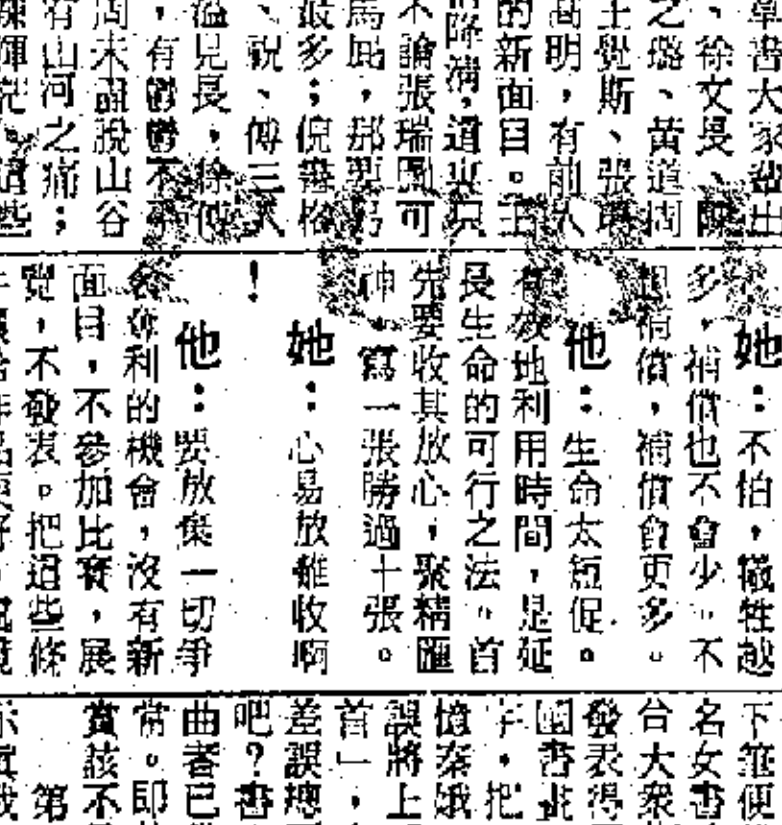 書大家盡出
、徐文長、陳
之璐、黃道周
王覺斯、張瑞
高明,有前人
的新面目。王
降清,道出只
不論張瑞圖可
馬屁,那要另
最多;倪書格
、祝、傅三人
溢見長,徐似
,有鬱鬱不平
周未盡脫山谷
有山河之痛;
這些
她:不怕,犧牲越
多,補償也不會少。不
想補償,補償會更多。
他:生命太短促。
有效地利用時間,是延
長生命的可行之法。首
先要收其放心,聚精匯
神,寫一張勝過十張。
她:心易放難收啊
!
他:要放棄一切爭
名奪利的機會,沒有新
面目,不參加比賽,展
覽,不發表。把這些條
下筆便
名女書
台大眾
發表得
國書畫
字,把
憶秦娥
誤將上
首」,
差誤總
吧?書
曲者已
常。即
賞該不
第